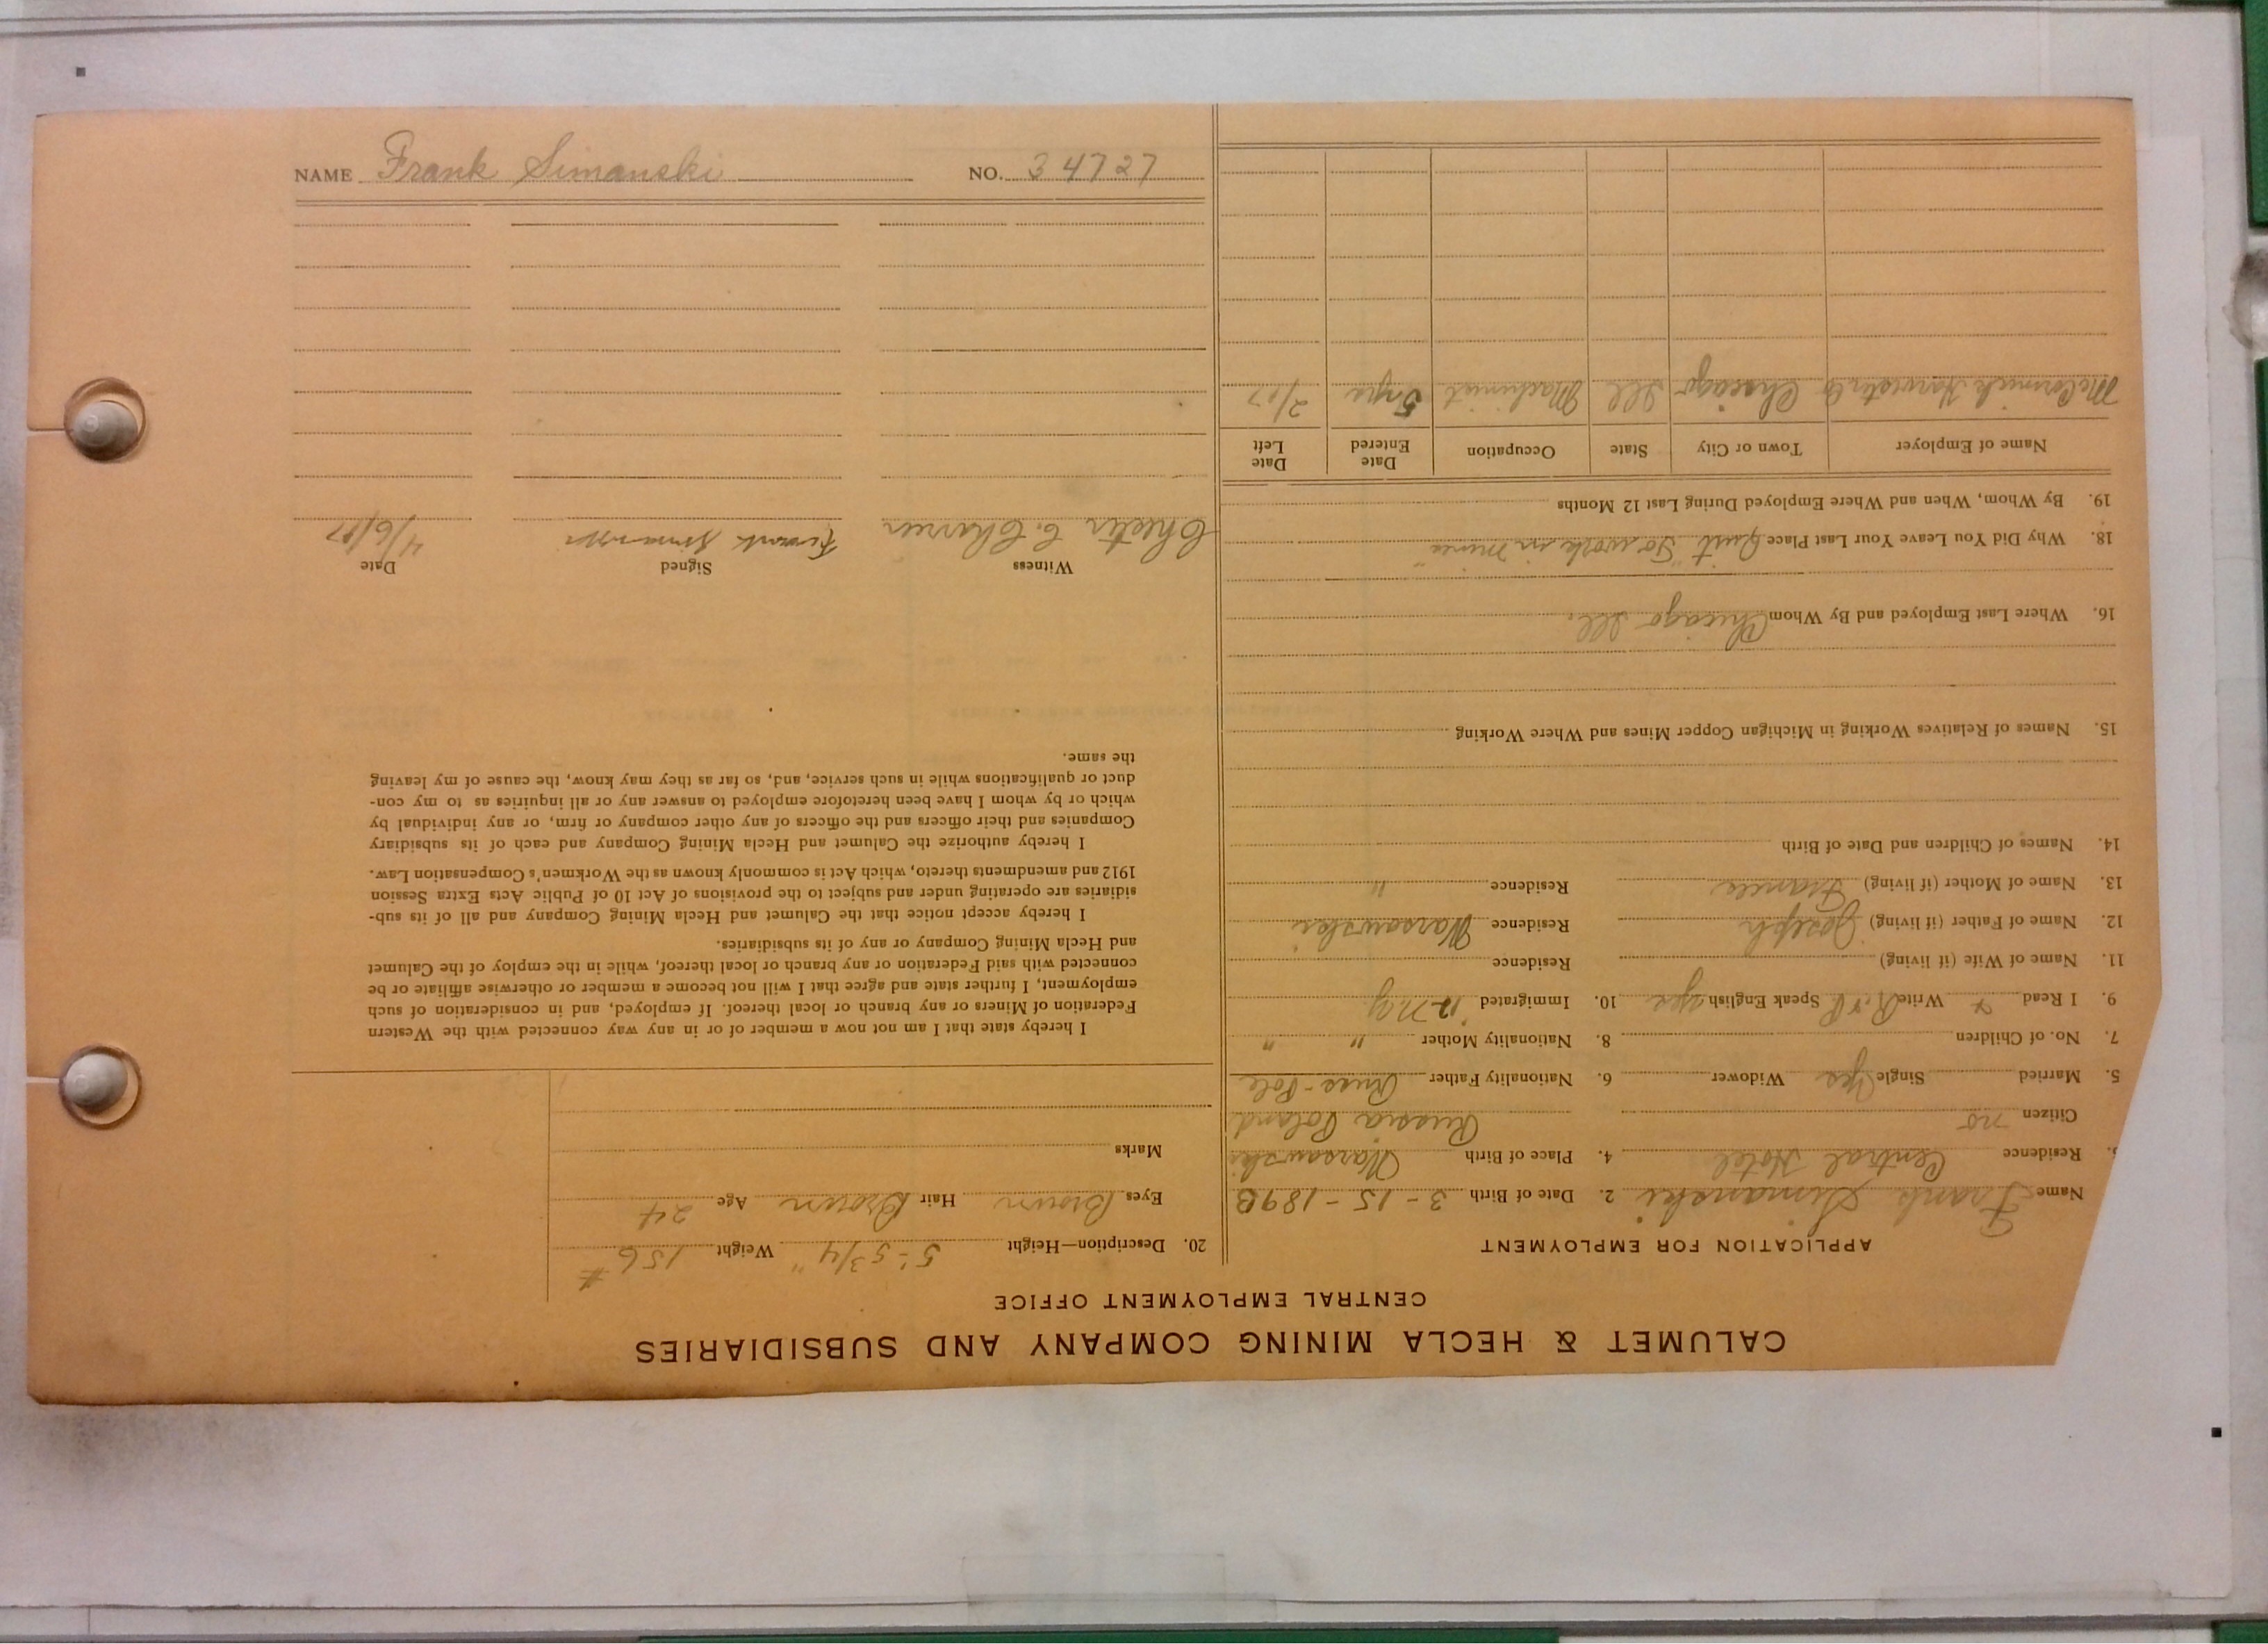 CALUMET & HECLA MINING COMPANY AND SUBSIDIARIES
CENTRAL EMPLOYMENT OFFICE
APPLICATION FOR EMPLOYMENT
Name Frank Simanski 2. Date of Birth 3-15-1893
Residence Central Hotel 4. Place of Birth Warsawski
Citizen no Russia Poland
5. Married Single Yes Widower 6. Nationality Father Russ-Pole
7. No. of Children 8. Nationality Mother " "
9. I Read Write Speak English yes 10. Immigrated
11. Name of Wife (if living) Residence
12. Name of Father (if living) Joseph Residence Warsawski
13. Name of Mother (if living) Frances Residence "
14. Names of Children and Date of Birth
15. Names of Relatives Working in Michigan Copper Mines and Where Working
16. Where Last Employed and By Whom Chicago Ill.
18. Why Did You Leave Your Last Place Quit "To work in mine"
19. By Whom, When and Where Employed During Last 12 Months
Name of Employer Town or City State Occupation Date Entered Date Left
McCormick Harvester Co Chicago Ill Machinist 5 yrs 2/17
20. Description—Height 5'-5 3/4" Weight 156 #
Eyes Brown Hair Brown Age 24
Marks
I hereby state that I am not now a member of or in any way connected with the Western
Federation of Miners or any branch or local thereof. If employed, and in consideration of such
employment, I further state and agree that I will not become a member or otherwise affiliate or be
connected with said Federation or any branch or local thereof, while in the employ of the Calumet
and Hecla Mining Company or any of its subsidiaries.
I hereby accept notice that the Calumet and Hecla Mining Company and all of its sub-
sidiaries are operating under and subject to the provisions of Act 10 of Public Acts Extra Session
1912 and amendments thereto, which Act is commonly known as the Workmen's Compensation Law.
I hereby authorize the Calumet and Hecla Mining Company and each of its subsidiary
Companies and their officers and the officers of any other company or firm, or any individual by
which or by whom I have been heretofore employed to answer any or all inquiries as to my con-
duct or qualifications while in such service, and, so far as they may know, the cause of my leaving
the same.
Witness Signed Date
Chester C. 4/6/17
NAME Frank Simanski NO. 34727